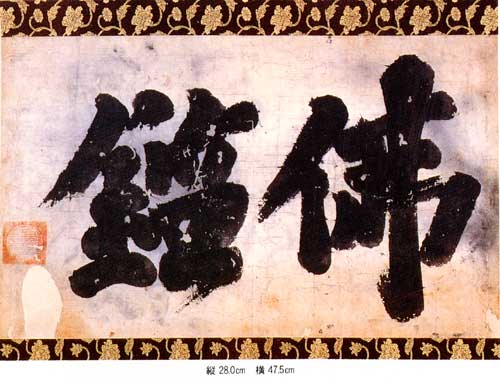 佛鑑
縦 28.0cm 横 47.5cm